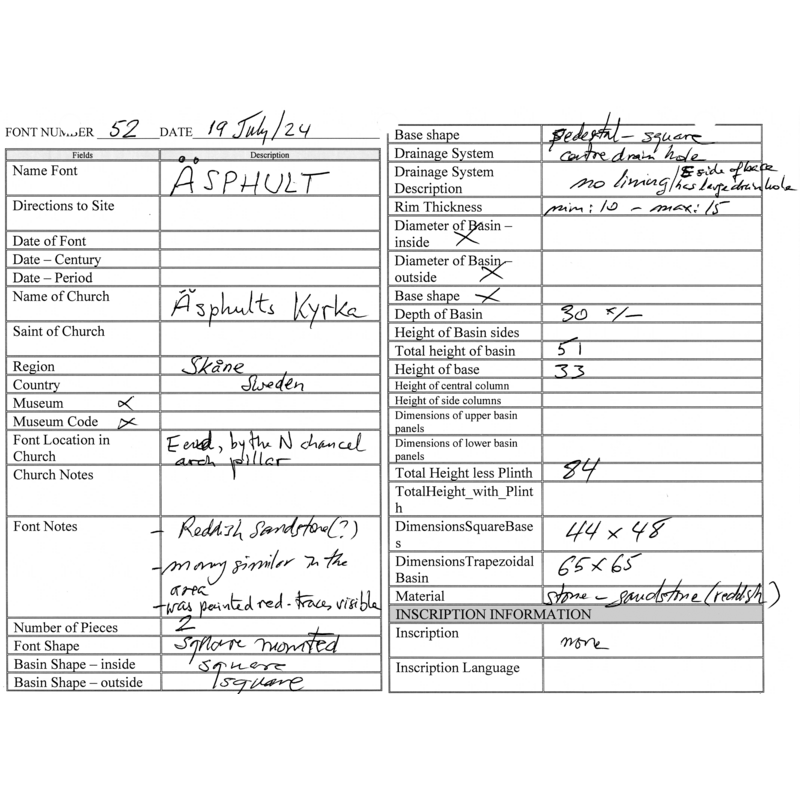 FONT NUMBER 52 DATE 19 July/24
Fields Description
Name Font ÄSPHULT
Directions to Site
Date of Font
Date – Century
Date – Period
Name of Church Äsphults Kyrka
Saint of Church
Region Skåne
Country Sweden
Museum
Museum Code
Font Location in by the N chancel
Church arch pillar
Church Notes
Font Notes - Reddish sandstone(?)
- many similar in the
area
- was painted red - traces visible
Number of Pieces 2
Font Shape square mounted
Basin Shape – inside square
Basin Shape – outside square
Base shape pedestal - square
Drainage System centre drain hole
Drainage System no lining/E side of base
Description has large drain hole
Rim Thickness min: 10 - max: 15
Diameter of Basin –
inside
Diameter of Basin –
outside
Base shape
Depth of Basin 30 +/-
Height of Basin sides
Total height of basin 51
Height of base 33
Height of central column
Height of side columns
Dimensions of upper basin
panels
Dimensions of lower basin
panels
Total Height less Plinth 84
TotalHeight_with_Plint
h
DimensionsSquareBase 44 x 48
s
DimensionsTrapezoidal 65 x 65
Basin
Material stone - sandstone (reddish)
INSCRIPTION INFORMATION
Inscription none
Inscription Language